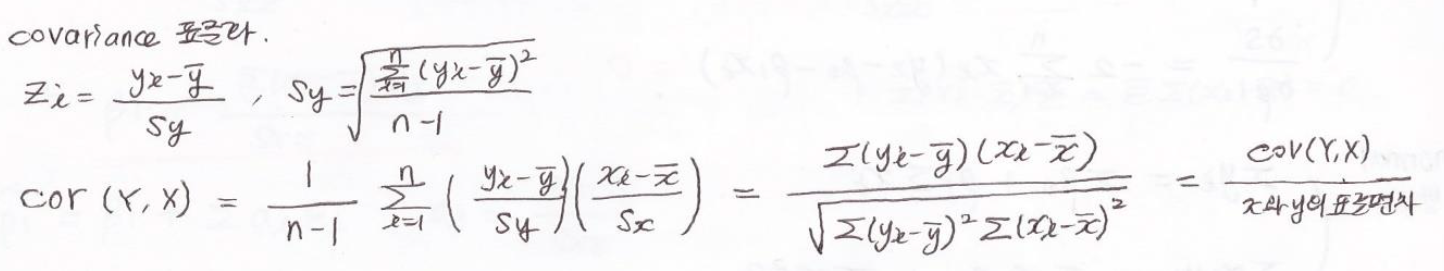 covariance 표준화.
Zi = (yi - ȳ) / Sy , Sy = √( Σ_{i=1}^{n} (yi - ȳ)² / (n-1) )
cor (Y, X) = 1/(n-1) Σ_{i=1}^{n} ( (yi - ȳ) / Sy ) ( (xi - x̄) / Sx ) = Σ(yi - ȳ)(xi - x̄) / √( Σ(yi - ȳ)² Σ(xi - x̄)² ) = cov(Y, X) / x와 y의 표준편차